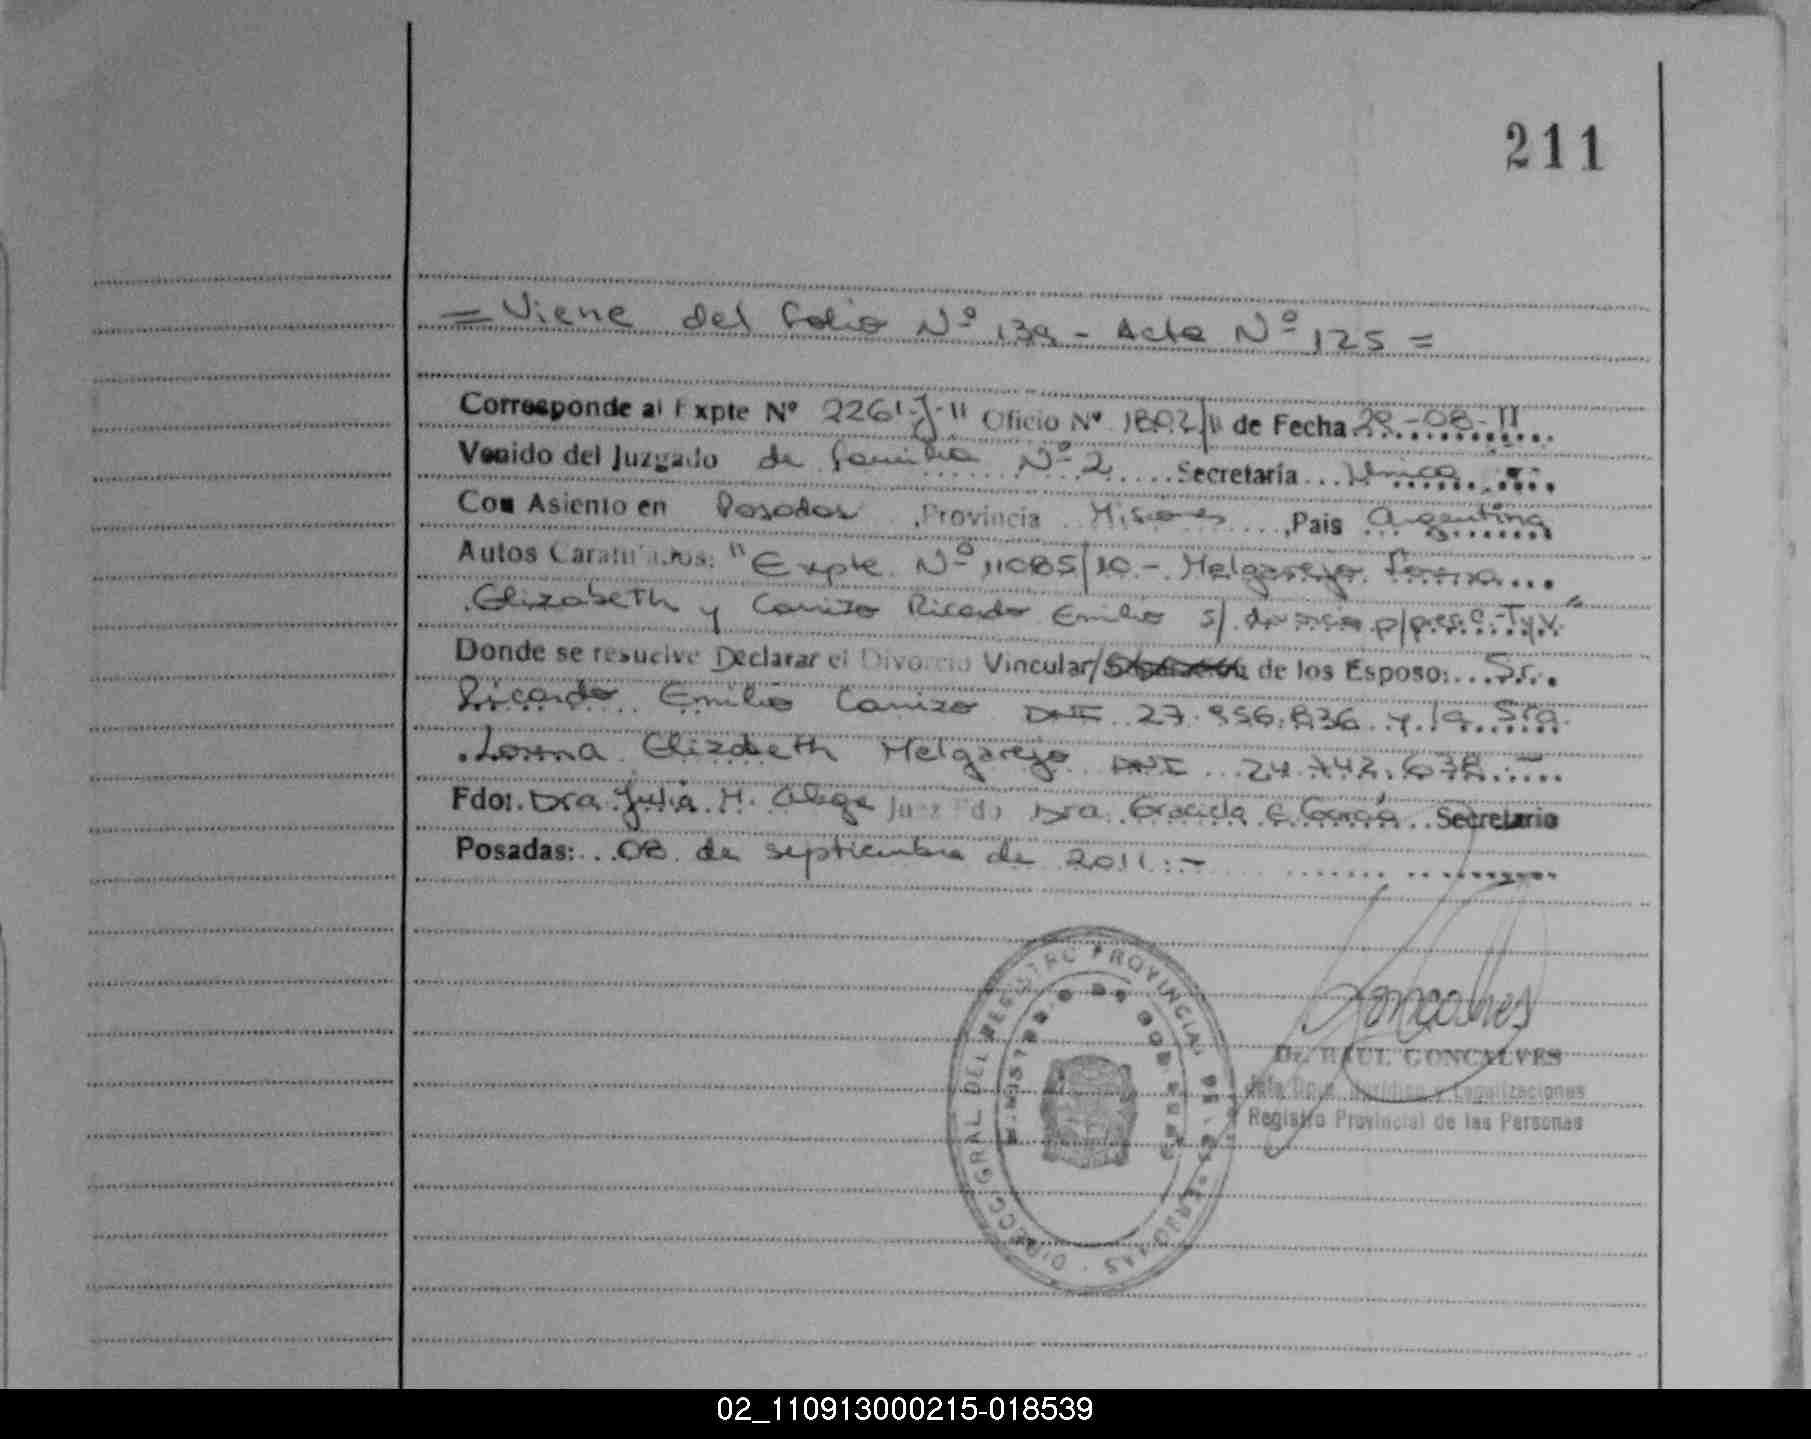 211
= Viene del folio Nº 139 - Acta Nº 125 =
Corresponde al Expte Nº 2261-J-11 Oficio Nº 1802/11 de Fecha 29-08-11
Venido del Juzgado de familia Nº 2 Secretaría Unica
Con Asiento en Posadas, Provincia Misiones, Pais Argentina
Autos Caratulados: "Expte Nº 11085/10 - Melgarejo Lorena
Elizabeth y Canizo Ricardo Emilio s/ divorcio p/pres. C. T y V."
Donde se resuelve Declarar el Divorcio Vincular/ de los Esposo: Sr.
Ricardo Emilio Canizo DNI 27.956.836 y la Sra.
Lorena Elizabeth Melgarejo DNI 24.742.678.-
Fdo: Dra Julia M. Alega Juez Fdo Dra. Graciela C. García Secretario
Posadas: 08 de septiembre de 2011.-
DIRECC. GRAL DEL REGISTRO PROVINCIAL DE LAS PERSONAS
MINISTERIO DE GOBIERNO
Goncalves
Dr. RAUL GONCALVES
Jefe Dpto. Jurídico y Legalizaciones
Registro Provincial de las Personas
02_110913000215-018539